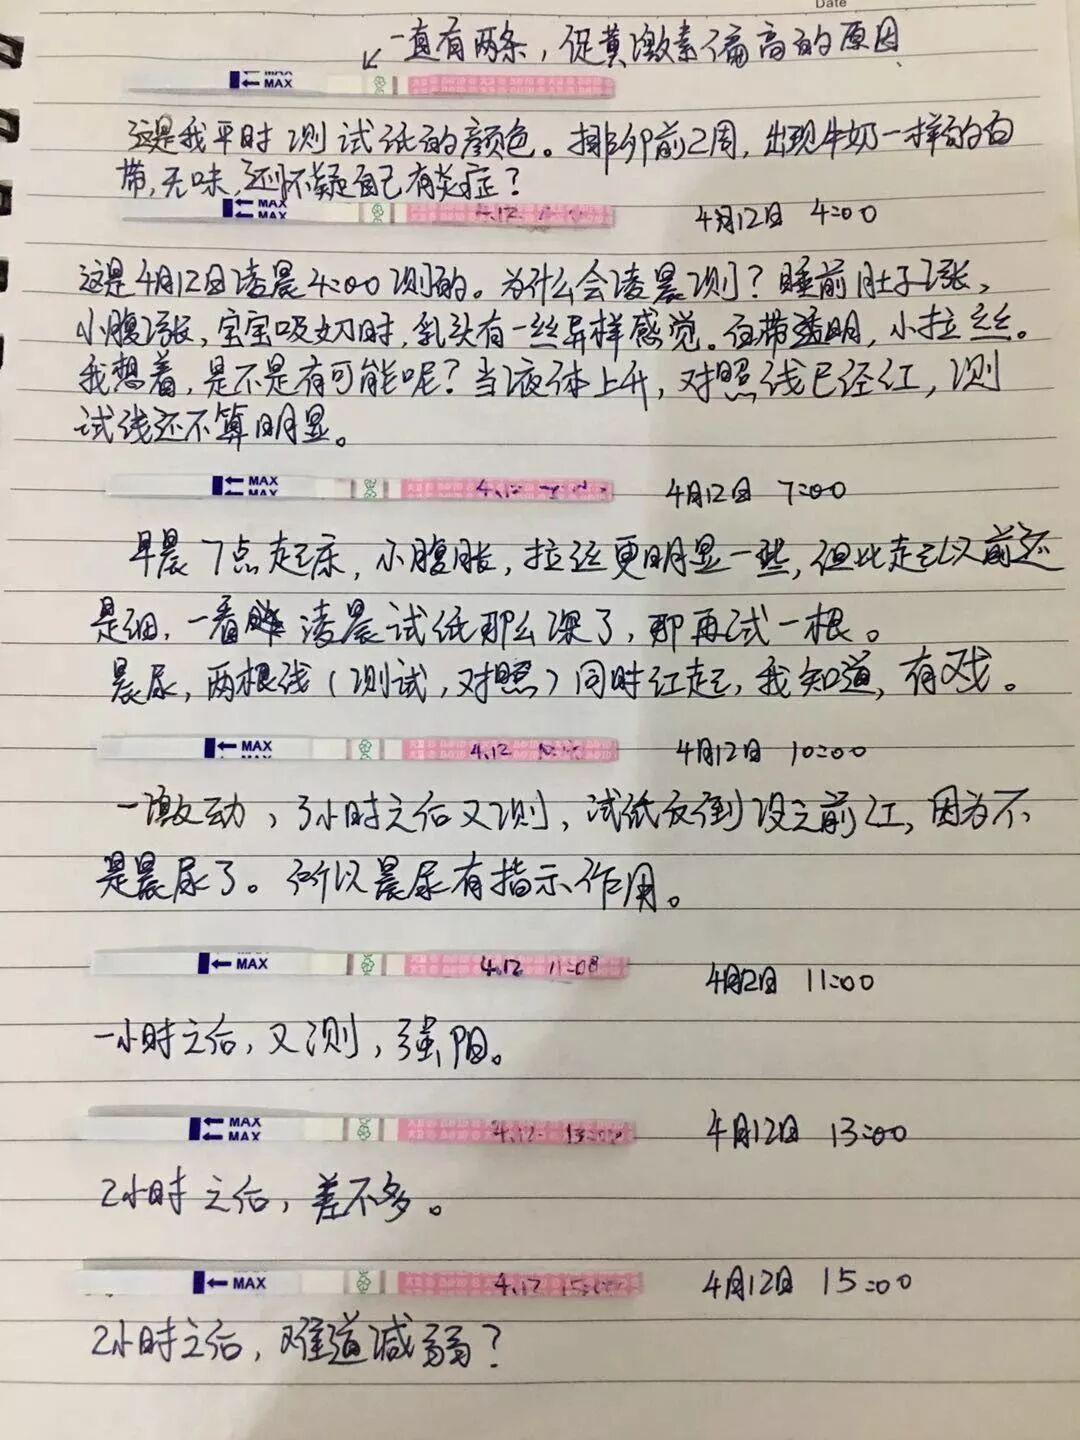 Date
一直有两条，促黄激素偏高的原因
MAX
MAX
这是我平时测试纸的颜色。排卵前2周，出现牛奶一样的白
带，无味，还怀疑自己有炎症？
MAX
MAX
4.12
4月12日 4:00
这是4月12日凌晨4:00测的。为什么会凌晨测？睡前肚子涨，
小腹涨，宝宝吸奶时，乳头有一丝异样感觉。白带透明，小拉丝。
我想着，是不是有可能呢？当液体上升，对照线已经红，测
试线还不算明显。
MAX
MAX
4月12日 7:00
早晨7点起床，小腹胀，拉丝更明显一些，但比起以前还
是细，一看 凌晨试纸那么深了，那再试一根。
晨尿，两根线（测试，对照）同时红起，我知道，有戏。
MAX
4.12
4月12日 10:00
一激动，3小时之后又测，试纸反倒没之前红，因为不
是晨尿了。所以晨尿有指示作用。
MAX
4.12 11:08
4月12日 11:00
一小时之后，又测，强阳。
MAX
MAX
4.12 13:00
4月12日 13:00
2小时之后，差不多。
MAX
4.12 15:00
4月12日 15:00
2小时之后，难道减弱？